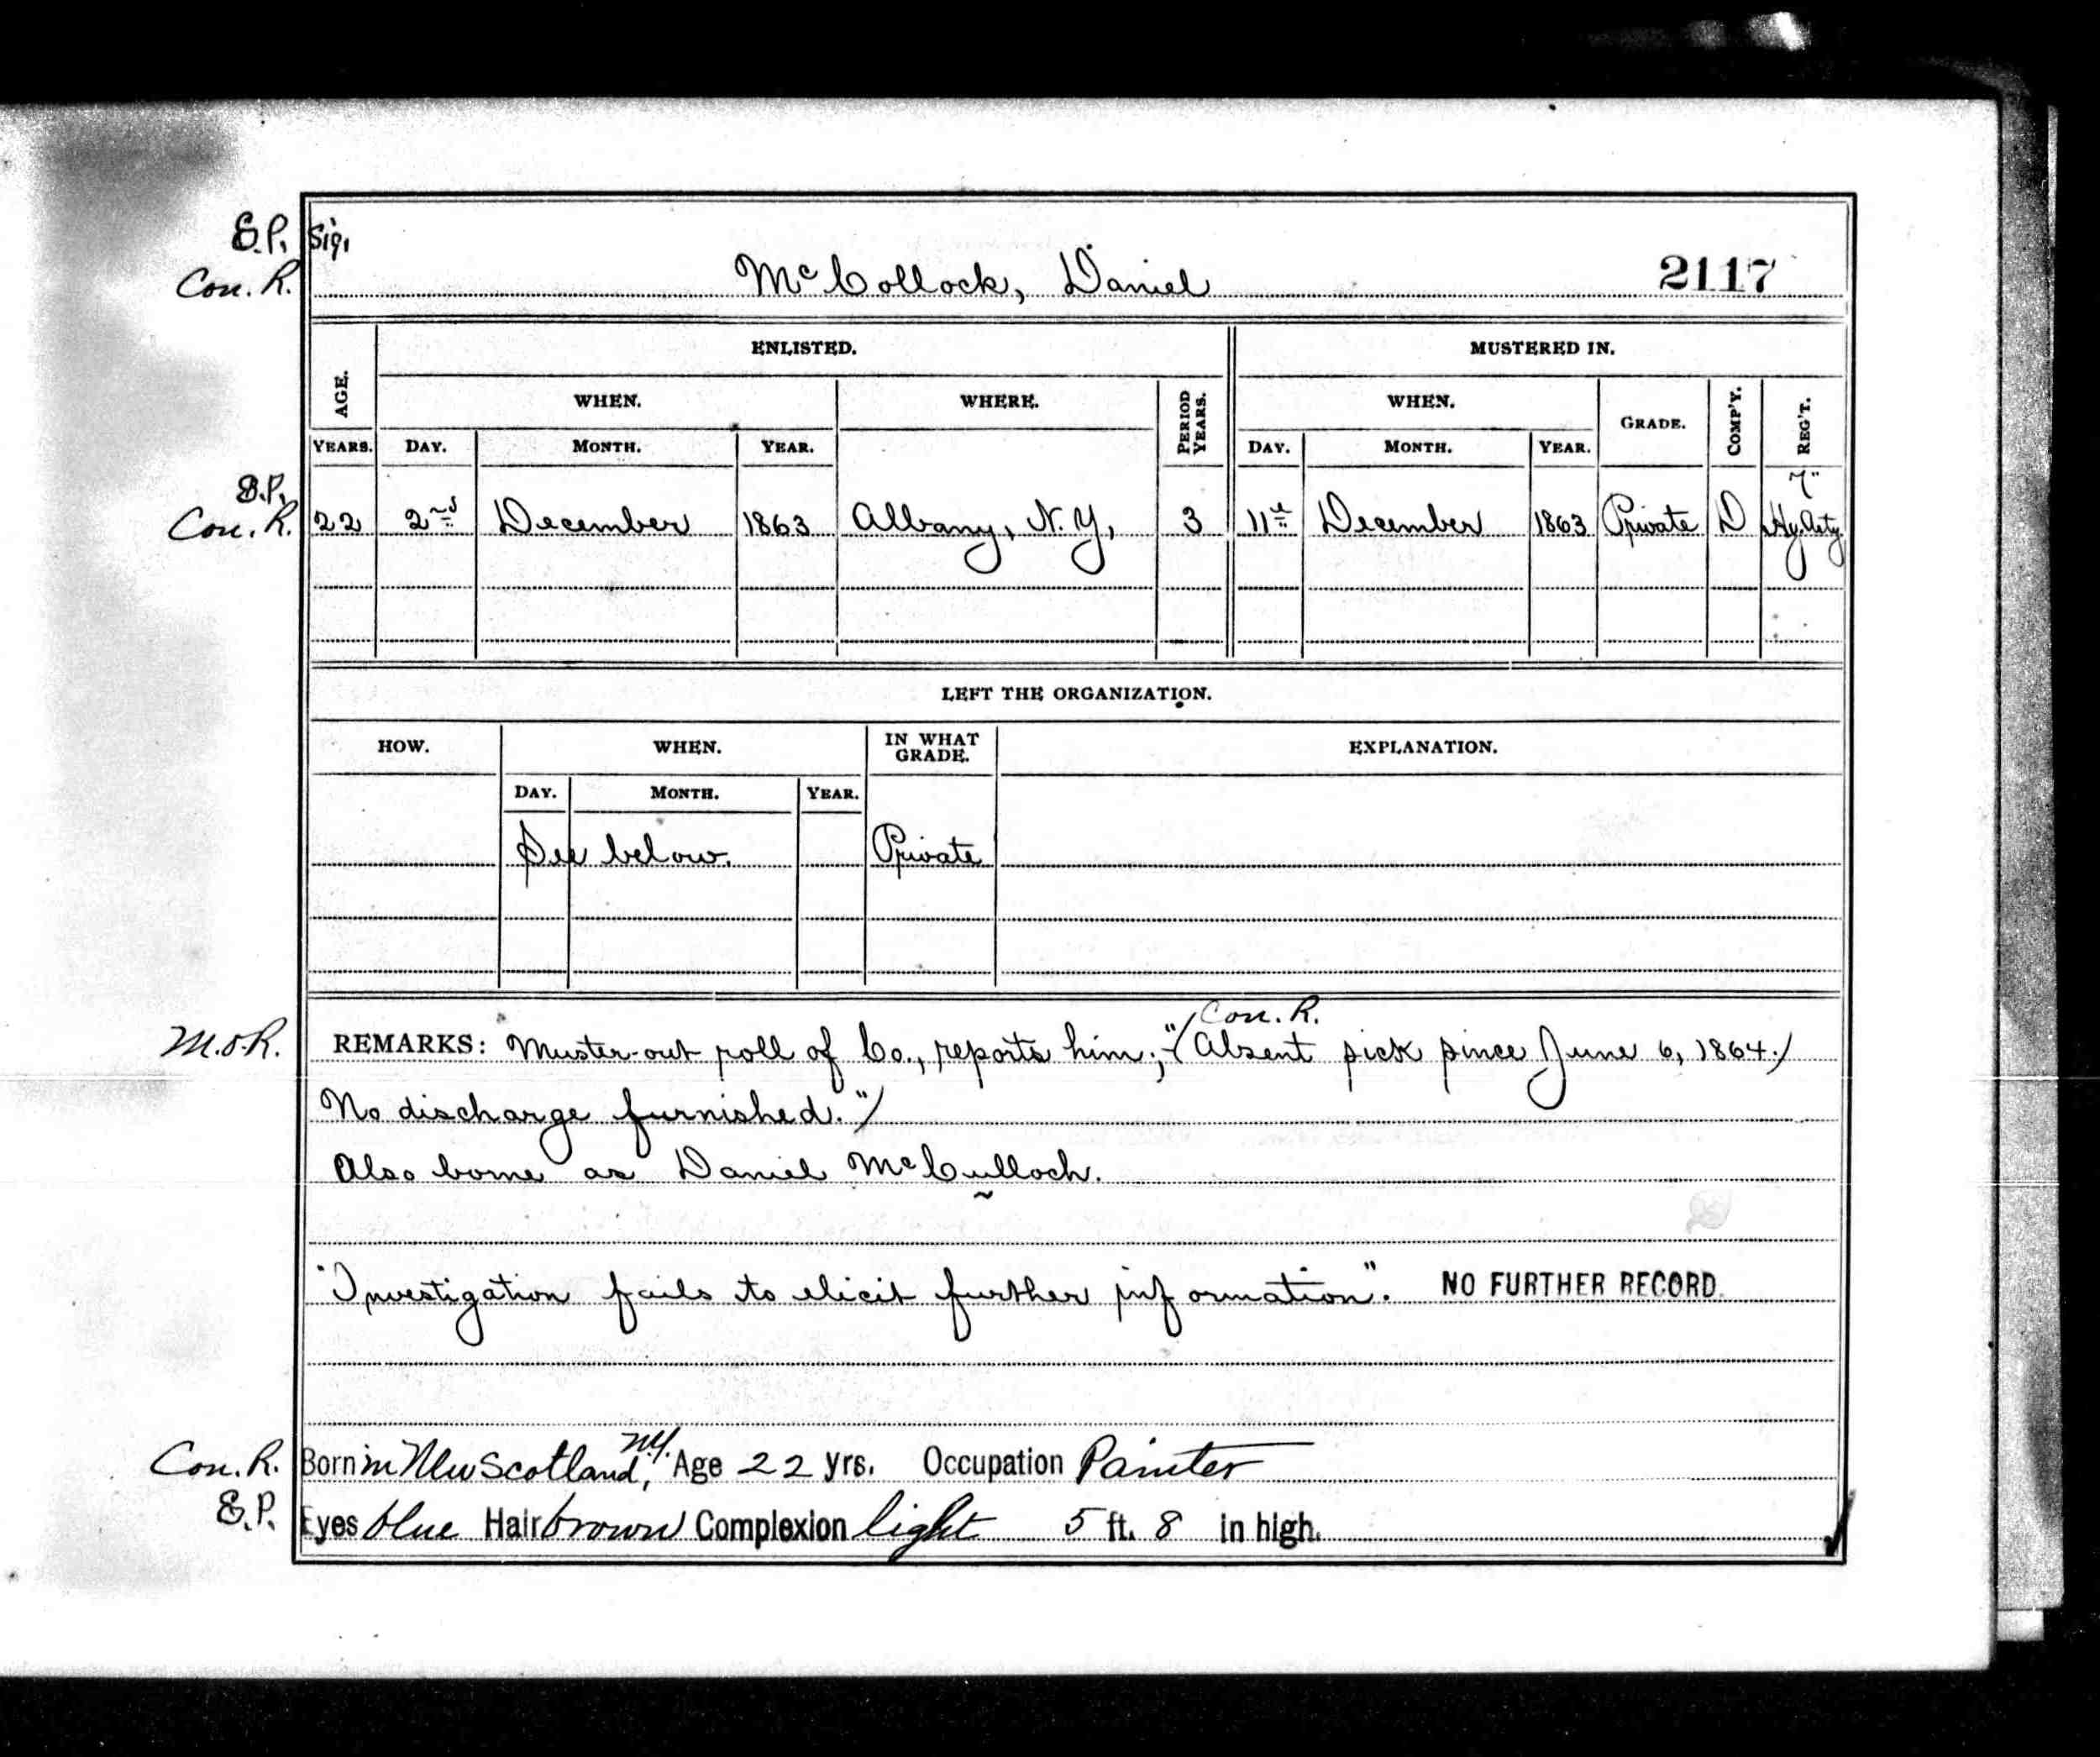 E.P. Sig.
Con. R. McCollock, Daniel 2117
ENLISTED. MUSTERED IN.
AGE. WHEN. WHERE. PERIOD YEARS. WHEN. GRADE. COMP'Y. REG'T.
YEARS. DAY. MONTH. YEAR. DAY. MONTH. YEAR.
E.P. 7"
Con. R. 22 2nd December 1863 Albany, N.Y. 3 11th December 1863 Private D Hy. Arty
LEFT THE ORGANIZATION.
HOW. WHEN. IN WHAT GRADE. EXPLANATION.
DAY. MONTH. YEAR.
See below. Private
Con. R.
M.o.R. REMARKS: Muster-out roll of Co., reports him; "(Absent sick since June 6, 1864./
No discharge furnished."/
Also borne as Daniel McCulloch.
"Investigation fails to elicit further information". NO FURTHER RECORD.
Con. R. Born in New Scotland, N.Y. Age 22 yrs. Occupation Painter
E.P. Eyes blue Hair brown Complexion light 5 ft. 8 in high.